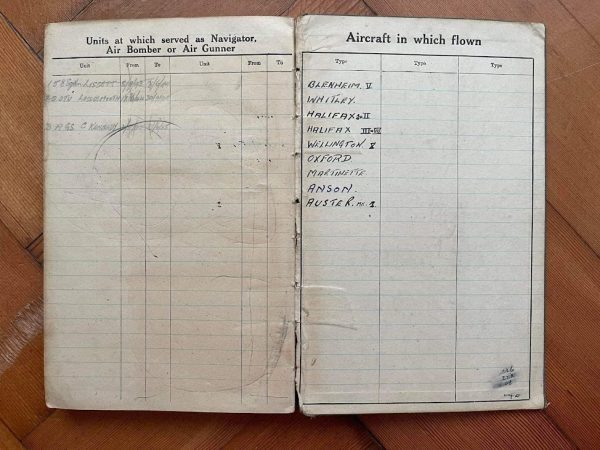 Units at which served as Navigator,
Air Bomber or Air Gunner
Unit From To Unit From To
158 Sqdn LISSETT
20 OTU LOSSIEMOUTH
C
Aircraft in which flown
Type Type Type
BLENHEIM. V
WHITLEY.
HALIFAX II
HALIFAX III
WELLINGTON X
OXFORD.
MARTINETTE.
ANSON.
AUSTER. MK. 1